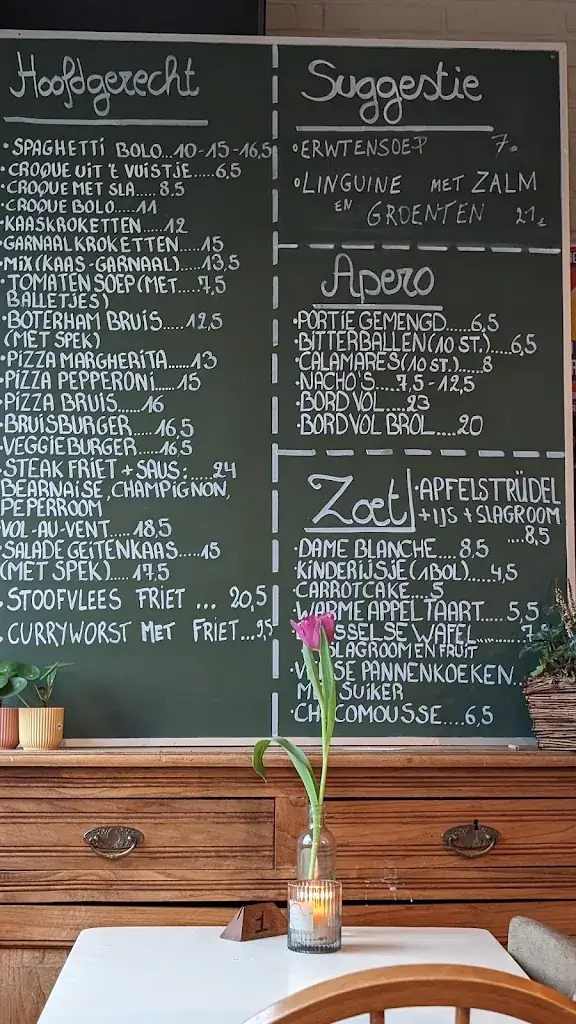 Hoofdgerecht
• SPAGHETTI BOLO...10-15-16,5
• CROQUE UIT 't VUISTJE.....6,5
• CROQUE MET SLA.....8.5
CROQUE BOLO....11
• KAASKROKETTEN.....12
• GARNAALKROKETTEN....15
• MIX (KAAS-GARNAAL)....13,5
• TOMATENSOEP (MET....7,5
BALLETJES)
• BOTERHAM BRUIS.....12,5
(MET SPEK)
• PIZZA MARGHERITA....13
• PIZZA PEPPERONI.....15
• PIZZA BRUIS.....16
• BRUISBURGER.....16,5
• VEGGIEBURGER.....16,5
• STEAK FRIET + SAUS:....24
BEARNAISE, CHAMPIGNON,
PEPERROOM
VOL-AU-VENT....18,5
• SALADE GEITENKAAS....15
(MET SPEK)....17.5
• STOOFVLEES FRIET ... 20,5
• CURRYWORST MET FRIET...9,5
Suggestie
• ERWTENSOEP 7.
• LINGUINE MET ZALM
EN GROENTEN 21€
Apero
• PORTIE GEMENGD.....6,5
• BITTERBALLEN (10 ST.)....6,5
• CALAMARES (10 ST.).....8
• NACHO'S....7,5-12,5
• BORD VOL....23
• BORD VOL BROL....20
Zoet
• APFELSTRÜDEL
+ IJS + SLAGROOM
...8,5
• DAME BLANCHE....8,5
• KINDERIJSJE (1 BOL).....4,5
CARROTCAKE...5
• WARME APPELTAART.....5,5
WAFEL
SLAGROOM EN FRUIT
PANNENKOEKEN..
SUIKER
MOUSSE....6,5
1